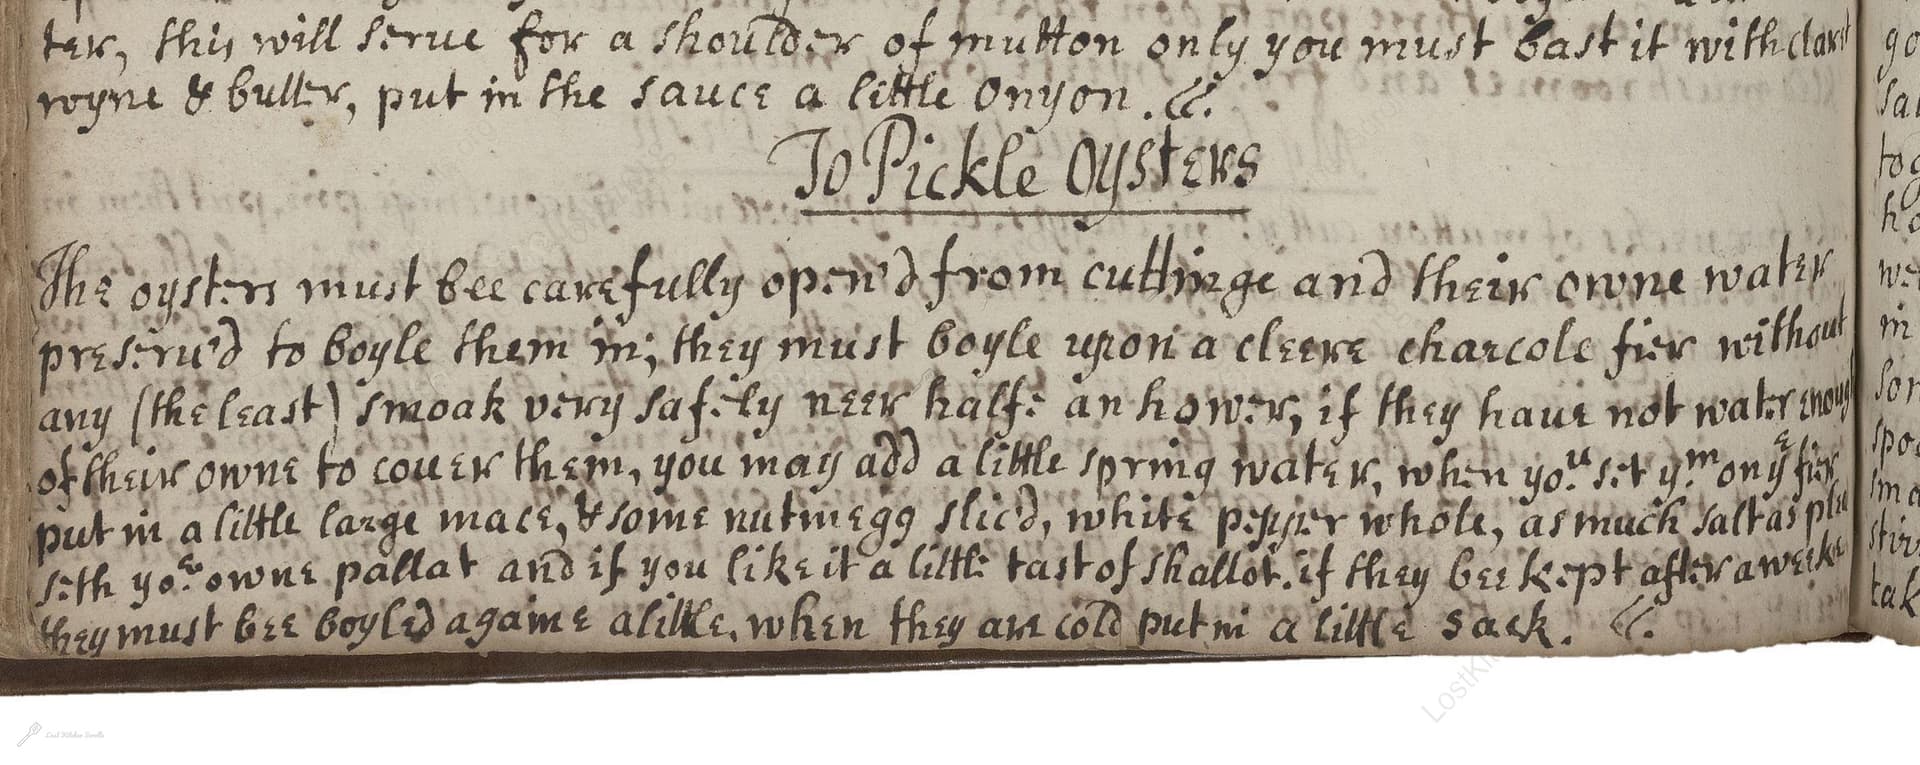 ter, this will serue for a shoulder of mutton only you must bast it with claret
wyne & butter, put in the sauce a little onyon. &.
To Pickle Oysters
The oysters must bee carefully open'd from cuttinge and their owne water
preseru'd to boyle them in; they must boyle upon a cleere charcole fier without
any (the least) smoak very safely neer halfe an hower, if they haue not water enough
of their owne to couer them, you may add a little spring water, when yo.u set y.m on ye fier
put in a little large mace, & some nutmegg slic'd, white pepper whole, as much salt as plea
seth yo.r owne pallat and if you like it a little tast of shallot. if they bee kept after a weeke
they must bee boyled againe a little, when they are cold put in a little sack. &.
go
sa
to
h
we
in
spo
sma
stir
tak
Lost Kitchen Scrolls